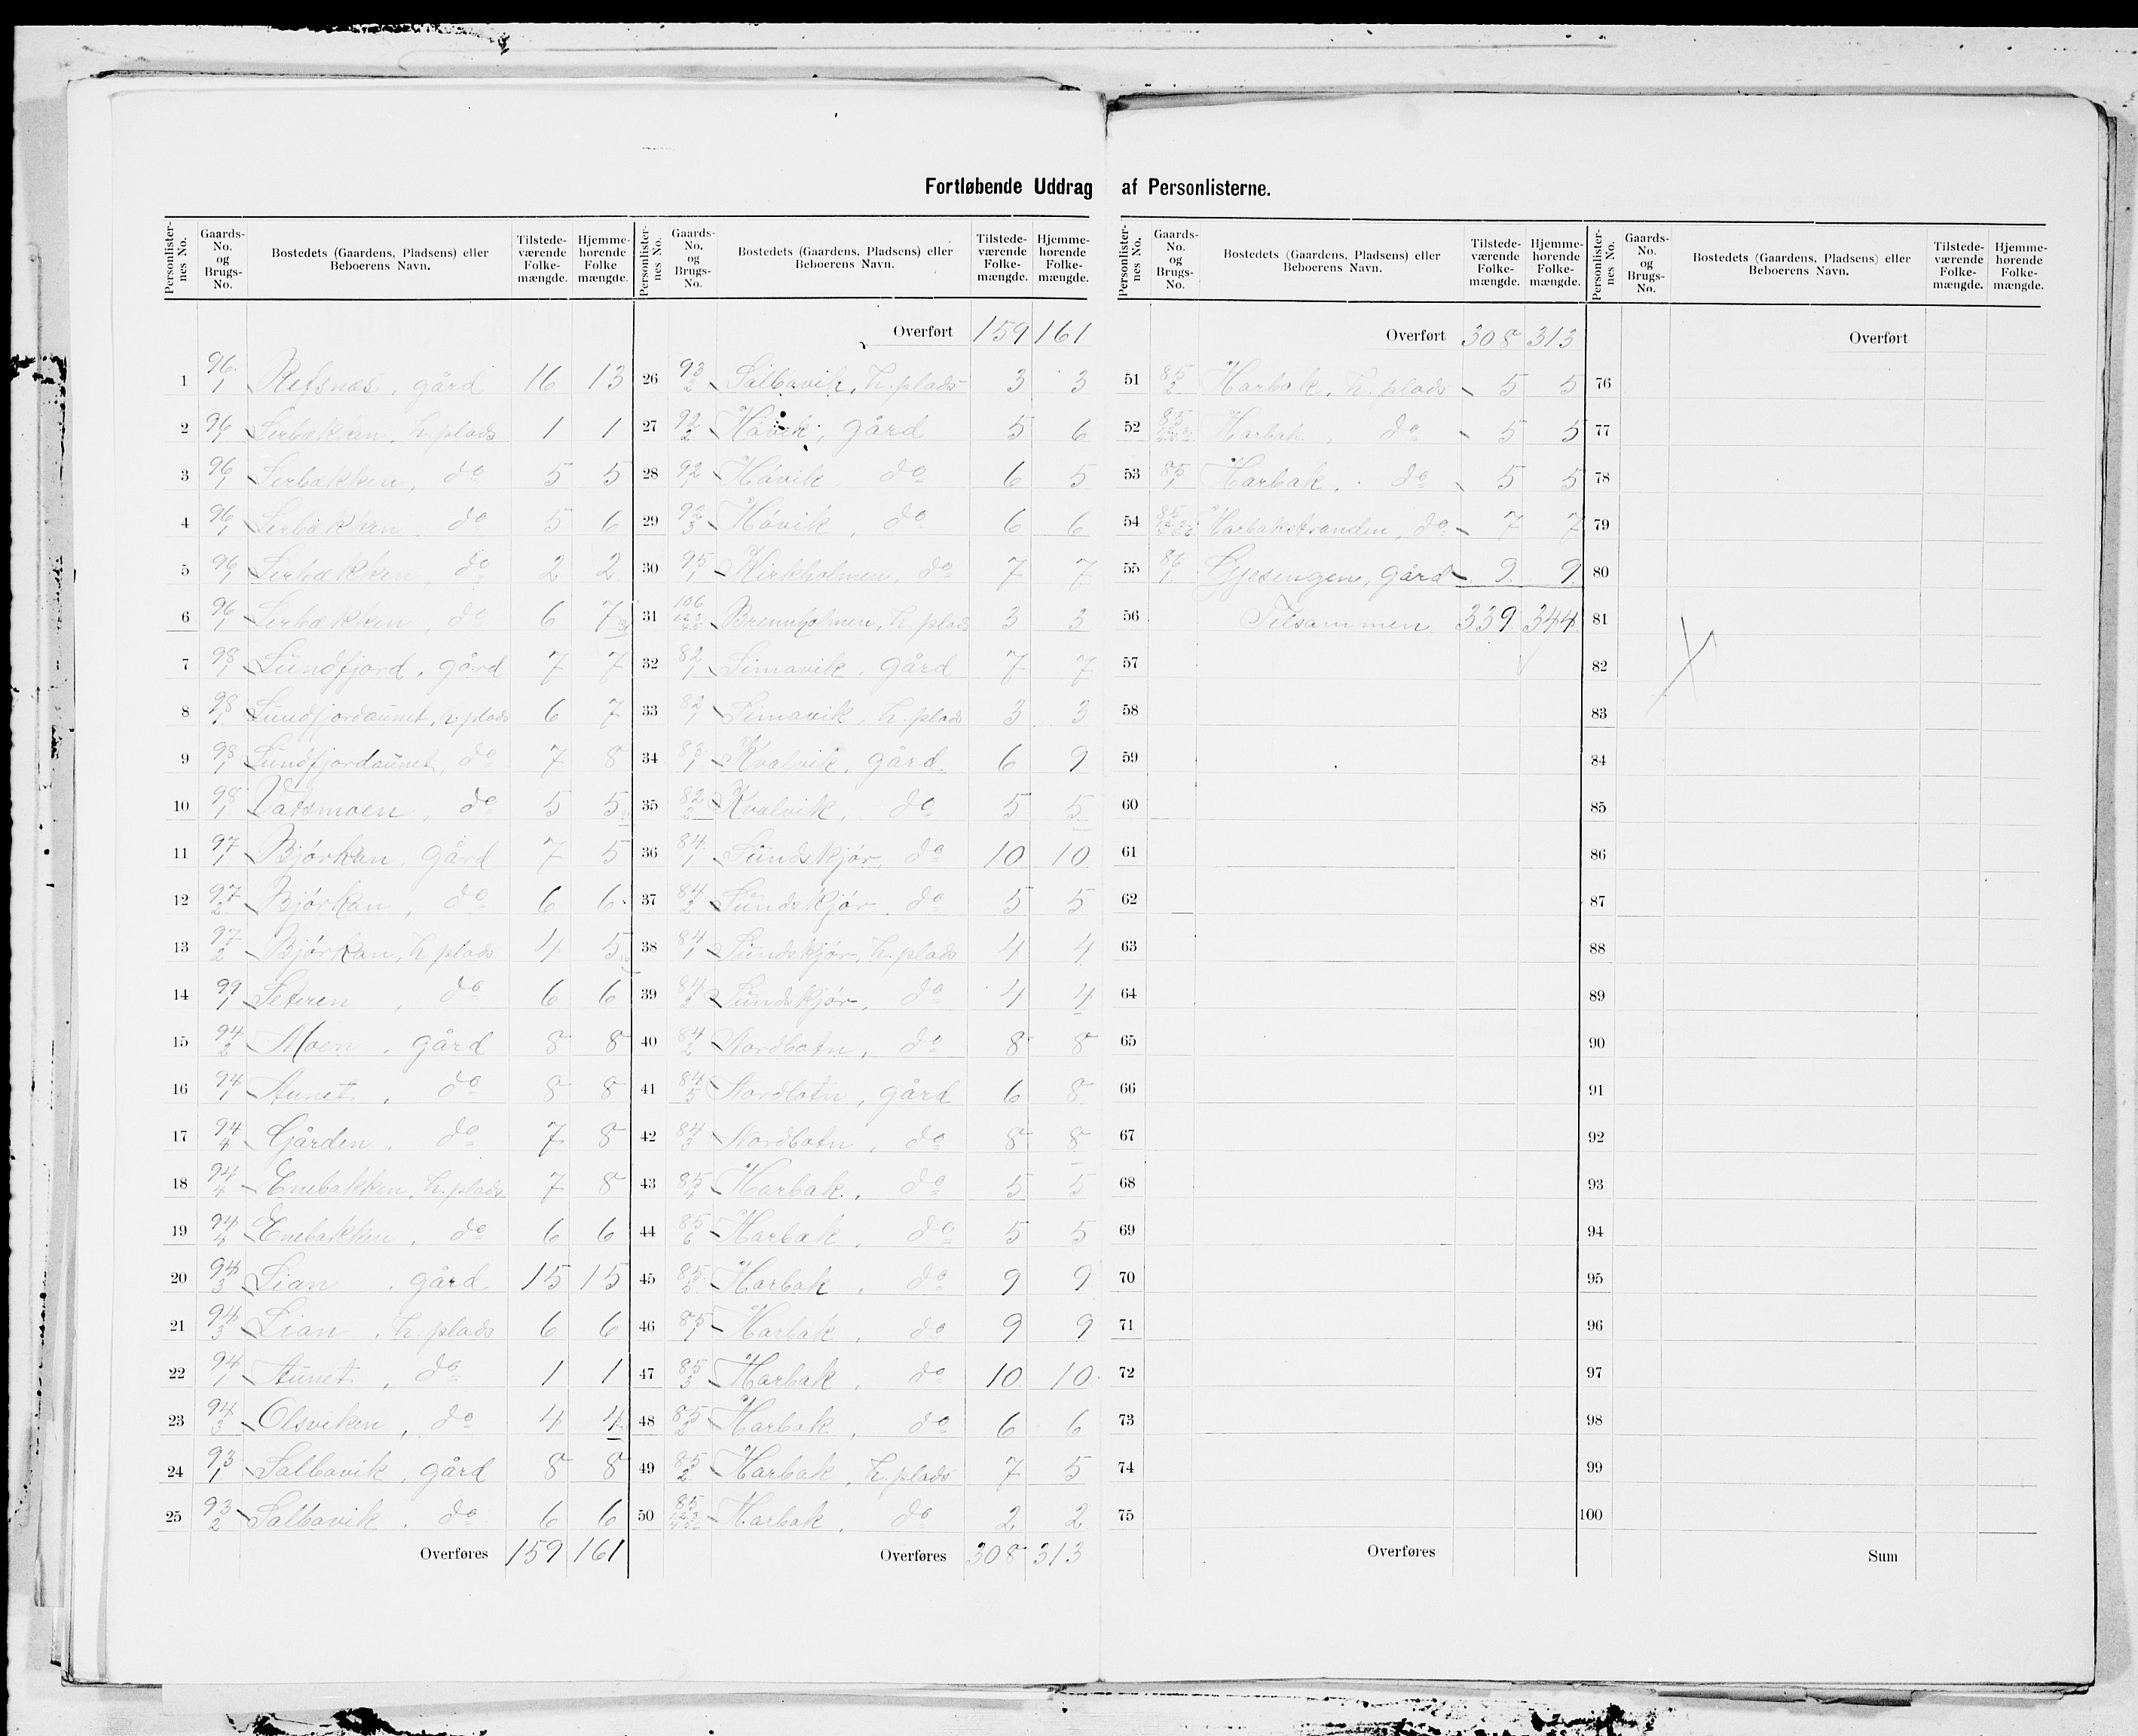 Fortløbende Uddrag af Personlisterne.
Personlister-nes No. | Gaards-No. og Brugs-No. | Bostedets (Gaardens, Pladsens) eller Beboerens Navn. | Tilstede-værende Folke-mængde. | Hjemme-hørende Folke mængde.
1 96/1 Refsnæs, gård 16 13
2 96/1 Lerbækken, h. plads 1 1
3 96/1 Lerbækken, do 5 5
4 96/1 Lerbækken do 5 6
5 96/1 Lerbækken do 2 2
6 96/1 Lerbækken, do 6 7
7 98/1 Sundfjord, gård 7 7
8 98/1 Sundfjordaunet, h. plads 6 7
9 98/1 Sundfjordaunet, do 7 8
10 98/1 Vassmoen, do 5 5
11 97/1 Bjørkan, gård 7 5
12 97/2 Bjørkan, do 6 6
13 97/2 Bjørkan, h plads 4 5
14 99/1 Seteren, do 6 6
15 94/2 Moen, gård 8 8
16 94/1 Aunet, do 8 8
17 94/4 Gården, do 7 8
18 94/4 Enebakken, h. plads 7 8
19 94/4 Enebakken, do 6 6
20 94/3 Lian, gård 15 15
21 94/3 Lian, h plads 6 6
22 94/1 Aunet, do 1 1
23 94/3 Olsviken, do 4 4
24 93/1 Salbavik, gård 8 8
25 93/2 Salbavik, do 6 6
Overføres 159 161
Personlister-nes No. | Gaards-No. og Brugs-No. | Bostedets (Gaardens, Pladsens) eller Beboerens Navn. | Tilstede-værende Folke-mængde. | Hjemme-hørende Folke-mængde.
Overført 159 161
26 93/2 Salbavik, h. plads 3 3
27 92/2 Håvik, gård 5 6
28 92/1 Håvik, do 6 5
29 92/3 Håvik, do 6 6
30 95/1 Kirkholmen, do 7 7
31 106 Brennholmen, h. plads 3 3
32 82/1 Simavik, gård 7 7
33 82/1 Simavik, h. plads 3 3
34 83/1 Kvalvik, gård 6 9
35 82/2 Kvalvik, do 5 5
36 84/1 Sundskjør, do 10 10
37 84/2 Sundskjør, do 5 5
38 84/1 Sundskjør, h. plads 4 4
39 84/2 Sundskjør, do 4 4
40 84/2 Nordbotn, do 8 8
41 84/5 Nordbotn, gård 6 8
42 84/3 Nordbotn, do 8 8
43 85/4 Harbak, do 5 5
44 85/6 Harbak, do 5 5
45 85/5 Harbak, do 9 9
46 85/1 Harbak, do 9 9
47 85/3 Harbak, do 10 10
48 85/2 Harbak, do 6 6
49 85/2 Harbak, h. plads 7 5
50 85 Harbak, do 2 2
Overføres 308 313
Personlister-nes No. | Gaards-No. og Brugs-No. | Bostedets (Gaardens, Pladsens) eller Beboerens Navn. | Tilstede-værende Folke-mængde. | Hjemme-hørende Folke-mængde.
Overført 308 313
51 85/2 Harbak, h. plads 5 5
52 85 Harbak, do 5 5
53 85/1 Harbak, do 5 5
54 85 Harbakstranden, do 7 7
55 86/1 Gjesingen, gård 9 9
56 Tilsammen 339 344
57
58
59
60
61
62
63
64
65
66
67
68
69
70
71
72
73
74
75
Overføres
Personlister-nes No. | Gaards-No. og Brugs-No. | Bostedets (Gaardens, Pladsens) eller Beboerens Navn. | Tilstede-værende Folke-mængde. | Hjemme-hørende Folke-mængde.
Overført
76
77
78
79
80
81
82
83
84
85
86
87
88
89
90
91
92
93
94
95
96
97
98
99
100
Sum